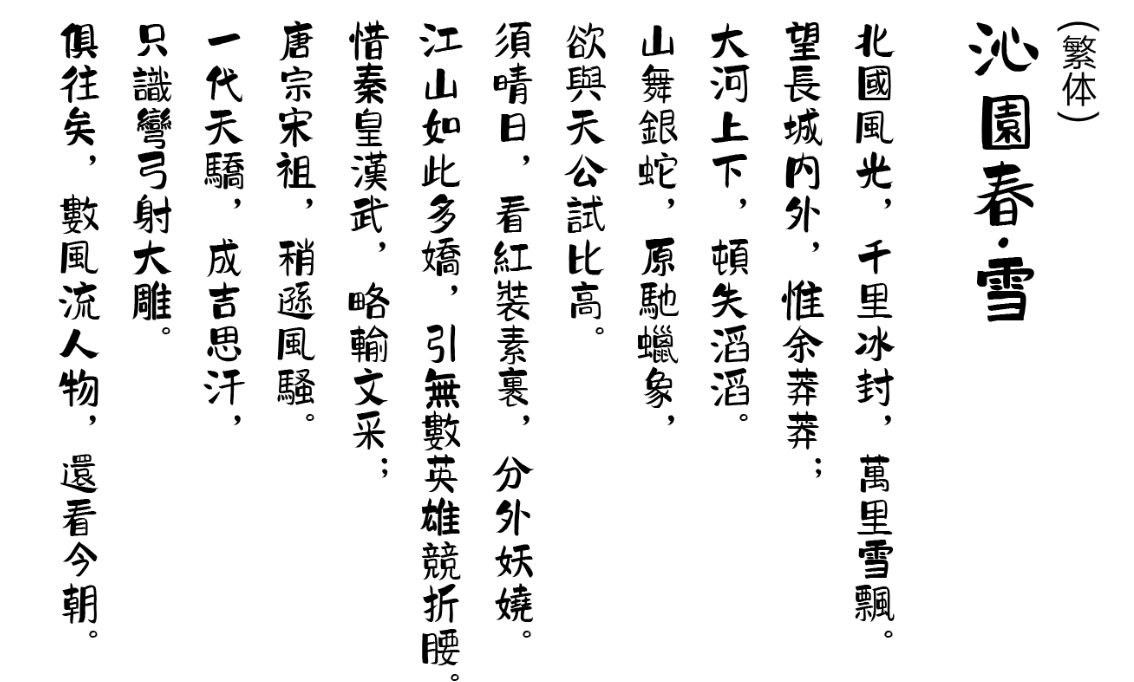 （繁体）
沁園春·雪
北國風光，千里冰封，萬里雪飄。
望長城内外，惟余莽莽；
大河上下，頓失滔滔。
山舞銀蛇，原馳蠟象，
欲與天公試比高。
須晴日，看紅裝素裏，分外妖嬈。
江山如此多嬌，引無數英雄競折腰。
惜秦皇漢武，略輸文采；
唐宗宋祖，稍遜風騷。
一代天驕，成吉思汗，
只識彎弓射大雕。
俱往矣，數風流人物，還看今朝。